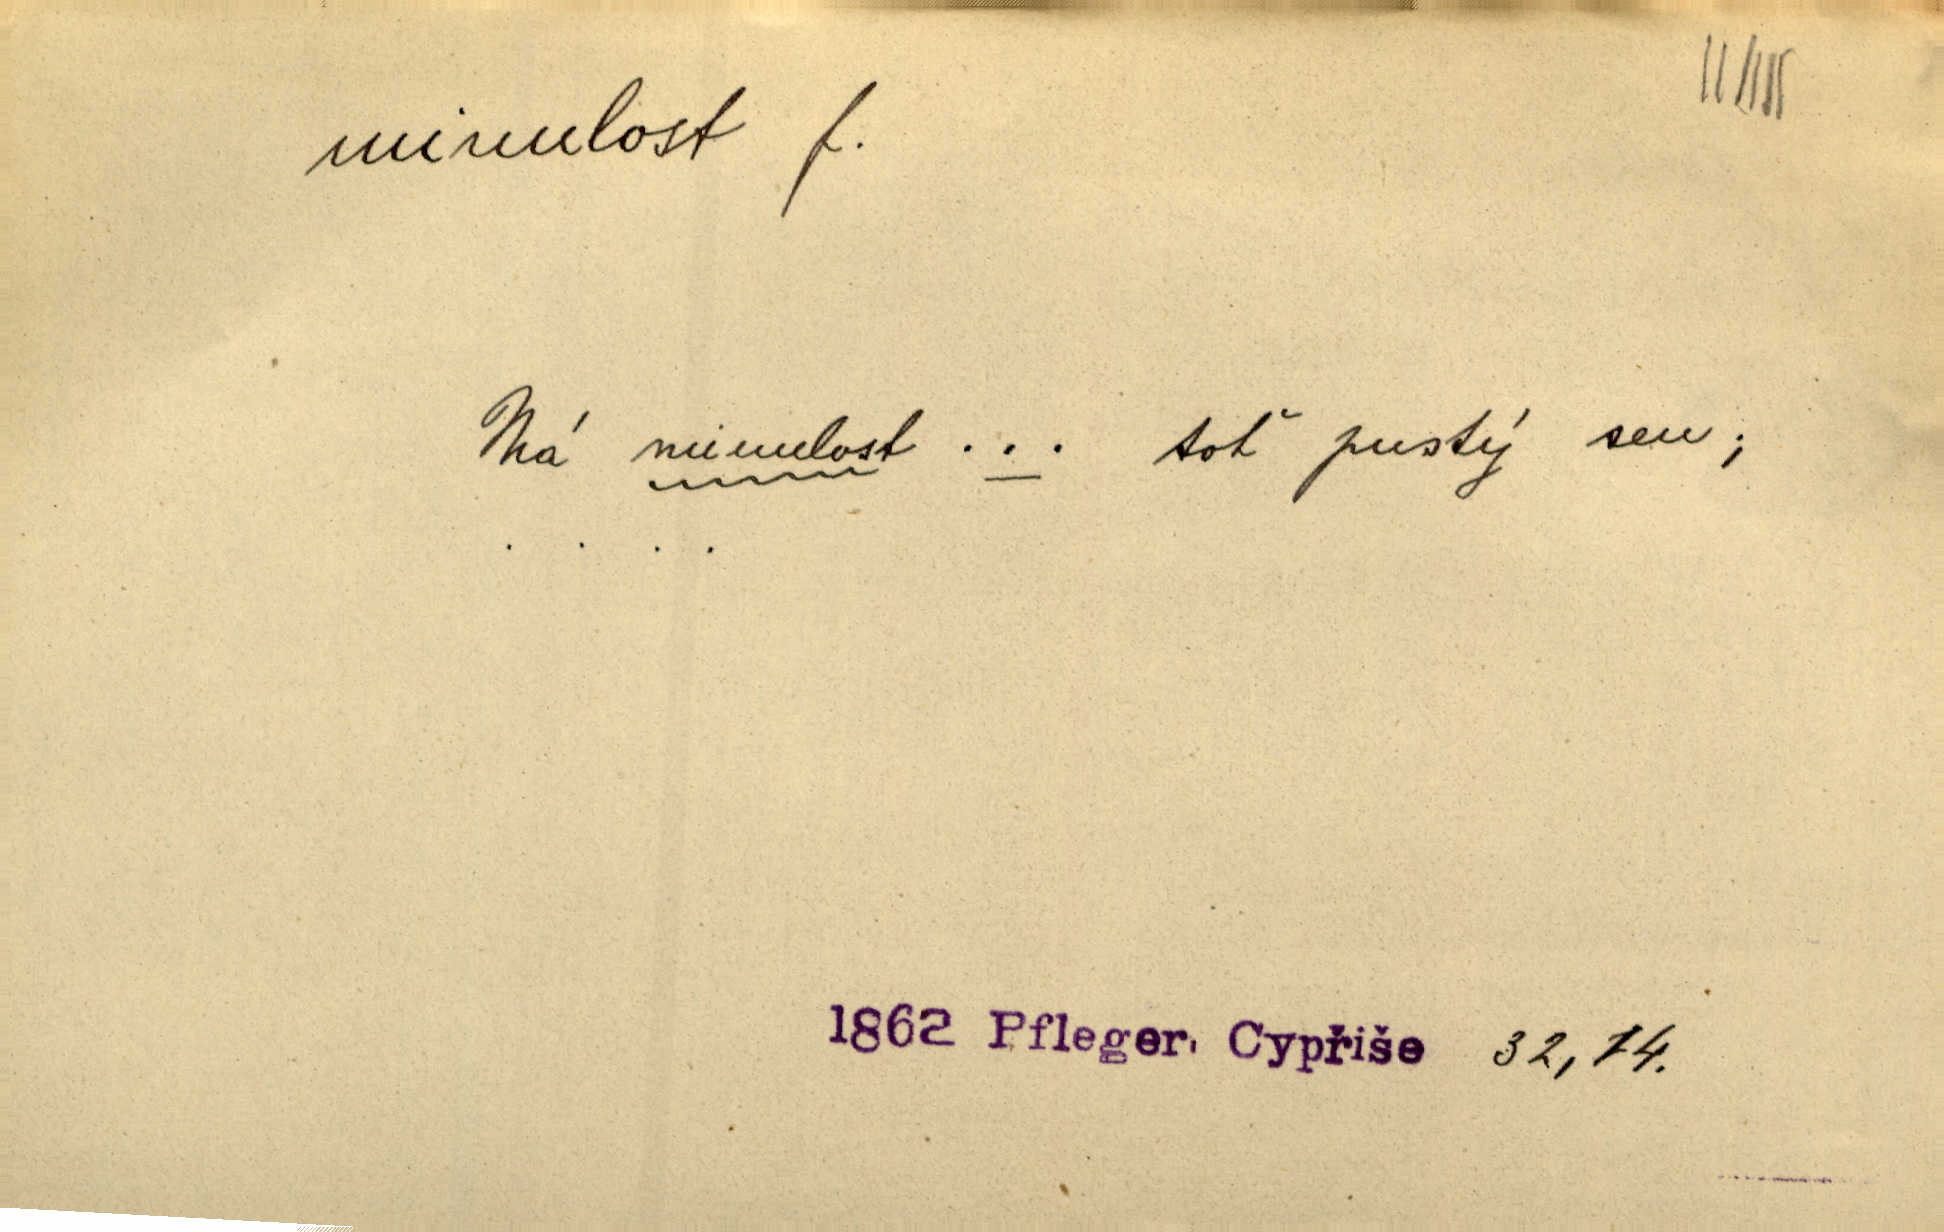 minulost f.
Má minulost ... toť pustý sen;
. . . .
1862 Pfleger, Cypřiše 32, 14.